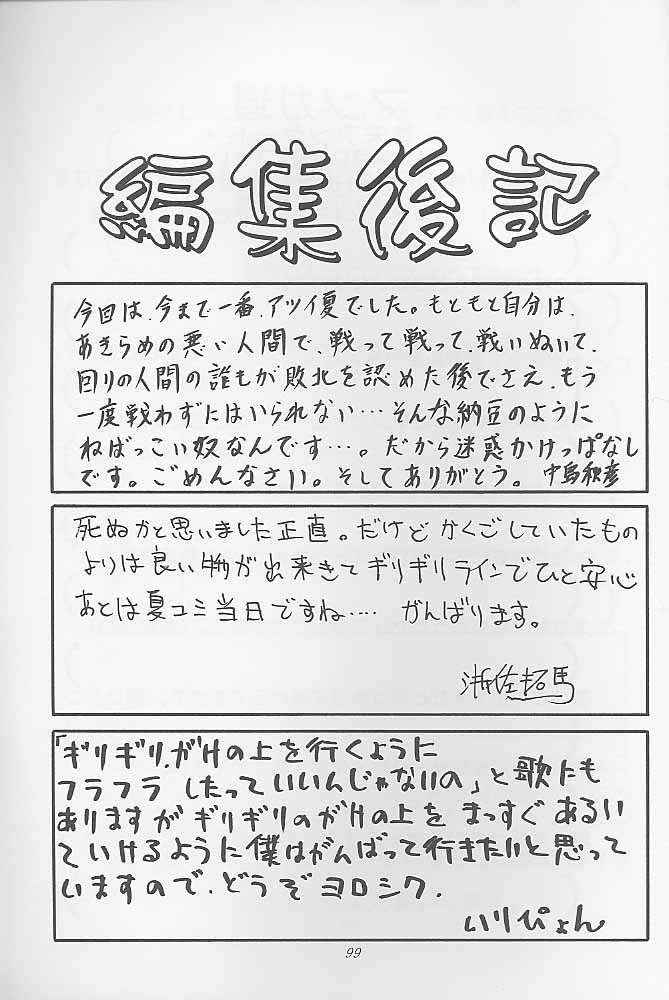 編集後記
今回は、今まで一番、アツイ夏でした。もともと自分は、
あきらめの悪い人間で、戦って戦って、戦いぬいて、
回りの人間の誰もが敗北を認めた後でさえ、もう
一度戦わずにはいられない…そんな納豆のように
ねばっこい奴なんです…。だから迷惑かけっぱなし
です。ごめんなさい。そしてありがとう。 中島
死ぬかと思いました正直。だけど かくごしていたもの
よりは良い物が出来きてギリギリラインでひと安心
あとは夏コミ当日ですね…. がんばります。
佐拓馬
「ギリギリ.がけの上を行くように
フラフラ したっていいんじゃないの」と歌にも
ありますがギリギリのがけの上を まっすぐ あるい
ていけるように僕はがんばって行きたいと思って
いますので、どうぞ ヨロシク.
いりぴょん
99